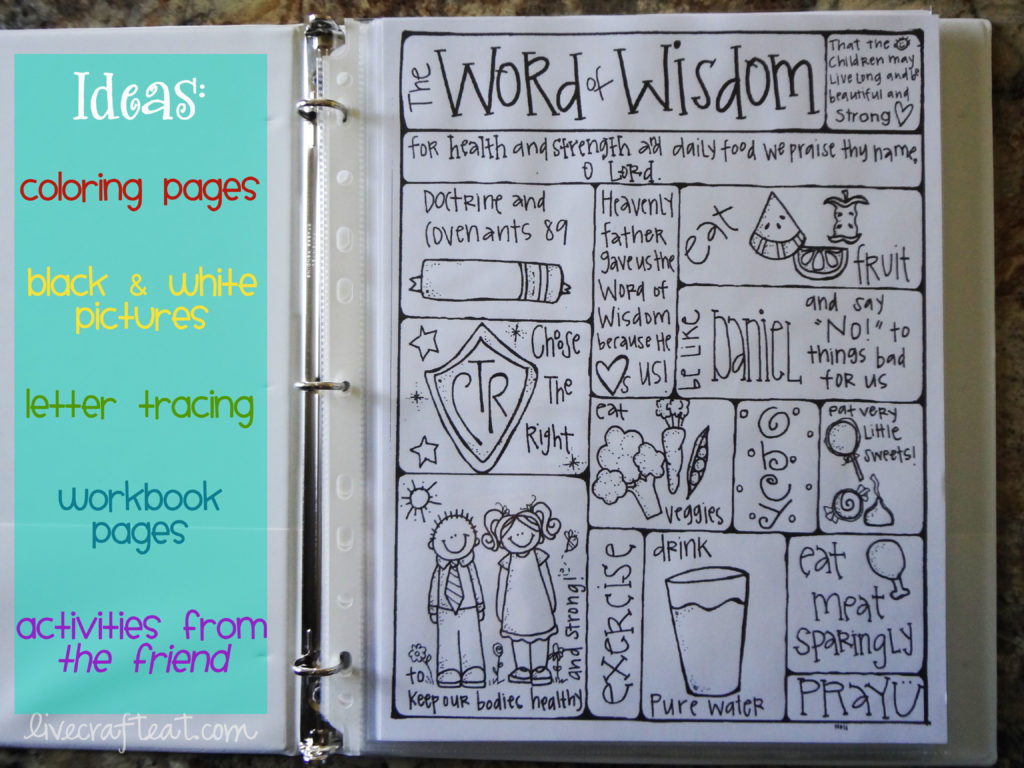 Ideas:
coloring pages
black & white
pictures
letter tracing
workbook
pages
activities from
the friend
livecrafteat.com
The Word of Wisdom
That the
Children may
Live Long and be
beautiful and
Strong
for health and strength and daily food we praise thy name,
O Lord.
Doctrine and
Covenants 89
Heavenly
father
gave us the
Word of
Wisdom
because He
♡s US!
eat
fruit
be like
Daniel
and say
"No!" to
things bad
for us
CTR
Choose
The
Right
eat
veggies
eat very
Little
sweets!
to
keep our bodies healthy
and strong!
exercise
drink
Pure water
eat
meat
sparingly
PRAY